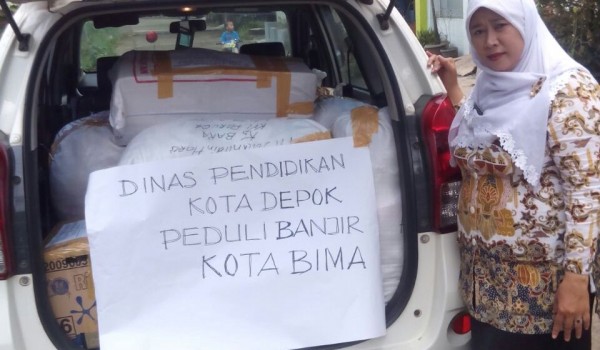 DINAS PENDIDIKAN
KOTA DEPOK
PEDULI BANJIR
KOTA BIMA